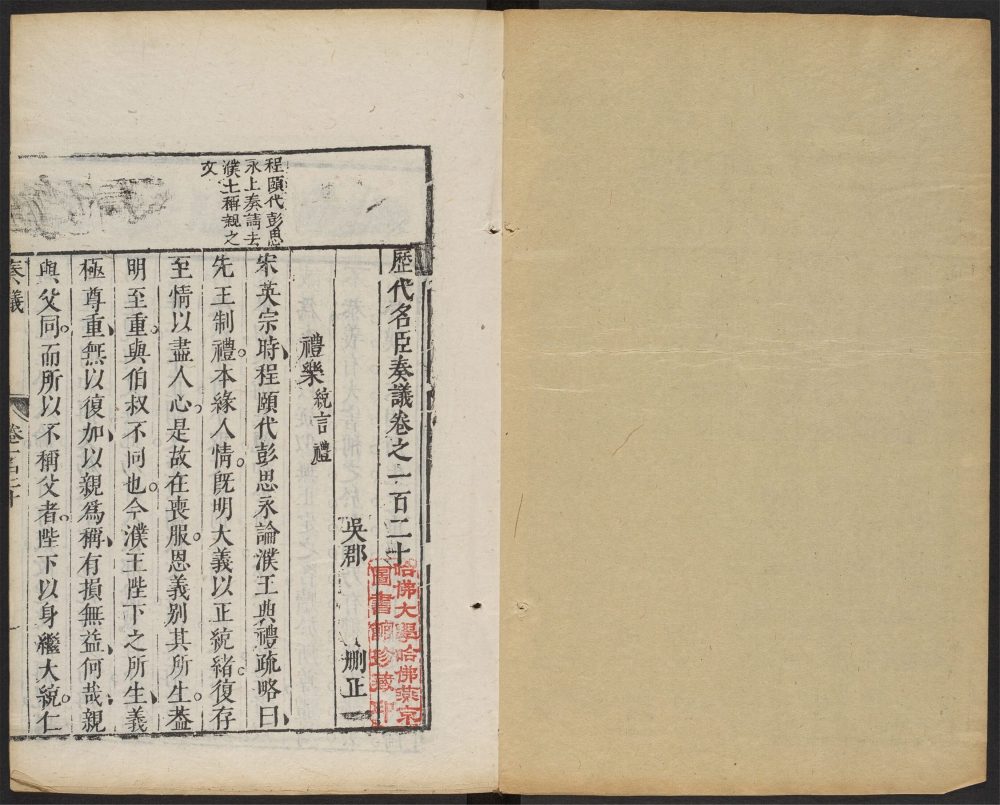 歷代名臣奏議卷之一百二十
哈佛大學哈佛燕京
圖書館珍藏印
吳郡 刪正
禮樂 統言禮
程頤代彭思
永上奏請去
濮王稱親之
文
宋英宗時程頤代彭思永論濮王典禮疏略曰
先王制禮。本緣人情。旣明大義以正統緒。復存
至情以盡人心。是故在喪服。恩義别其所生。葢
明至重。與伯叔不同也。今濮王陛下之所生、義
極尊重、無以復加、以親爲稱、有損無益、何哉、親
與父同。而所以不稱父者。陛下以身繼大統。仁
奏議
卷一百二十